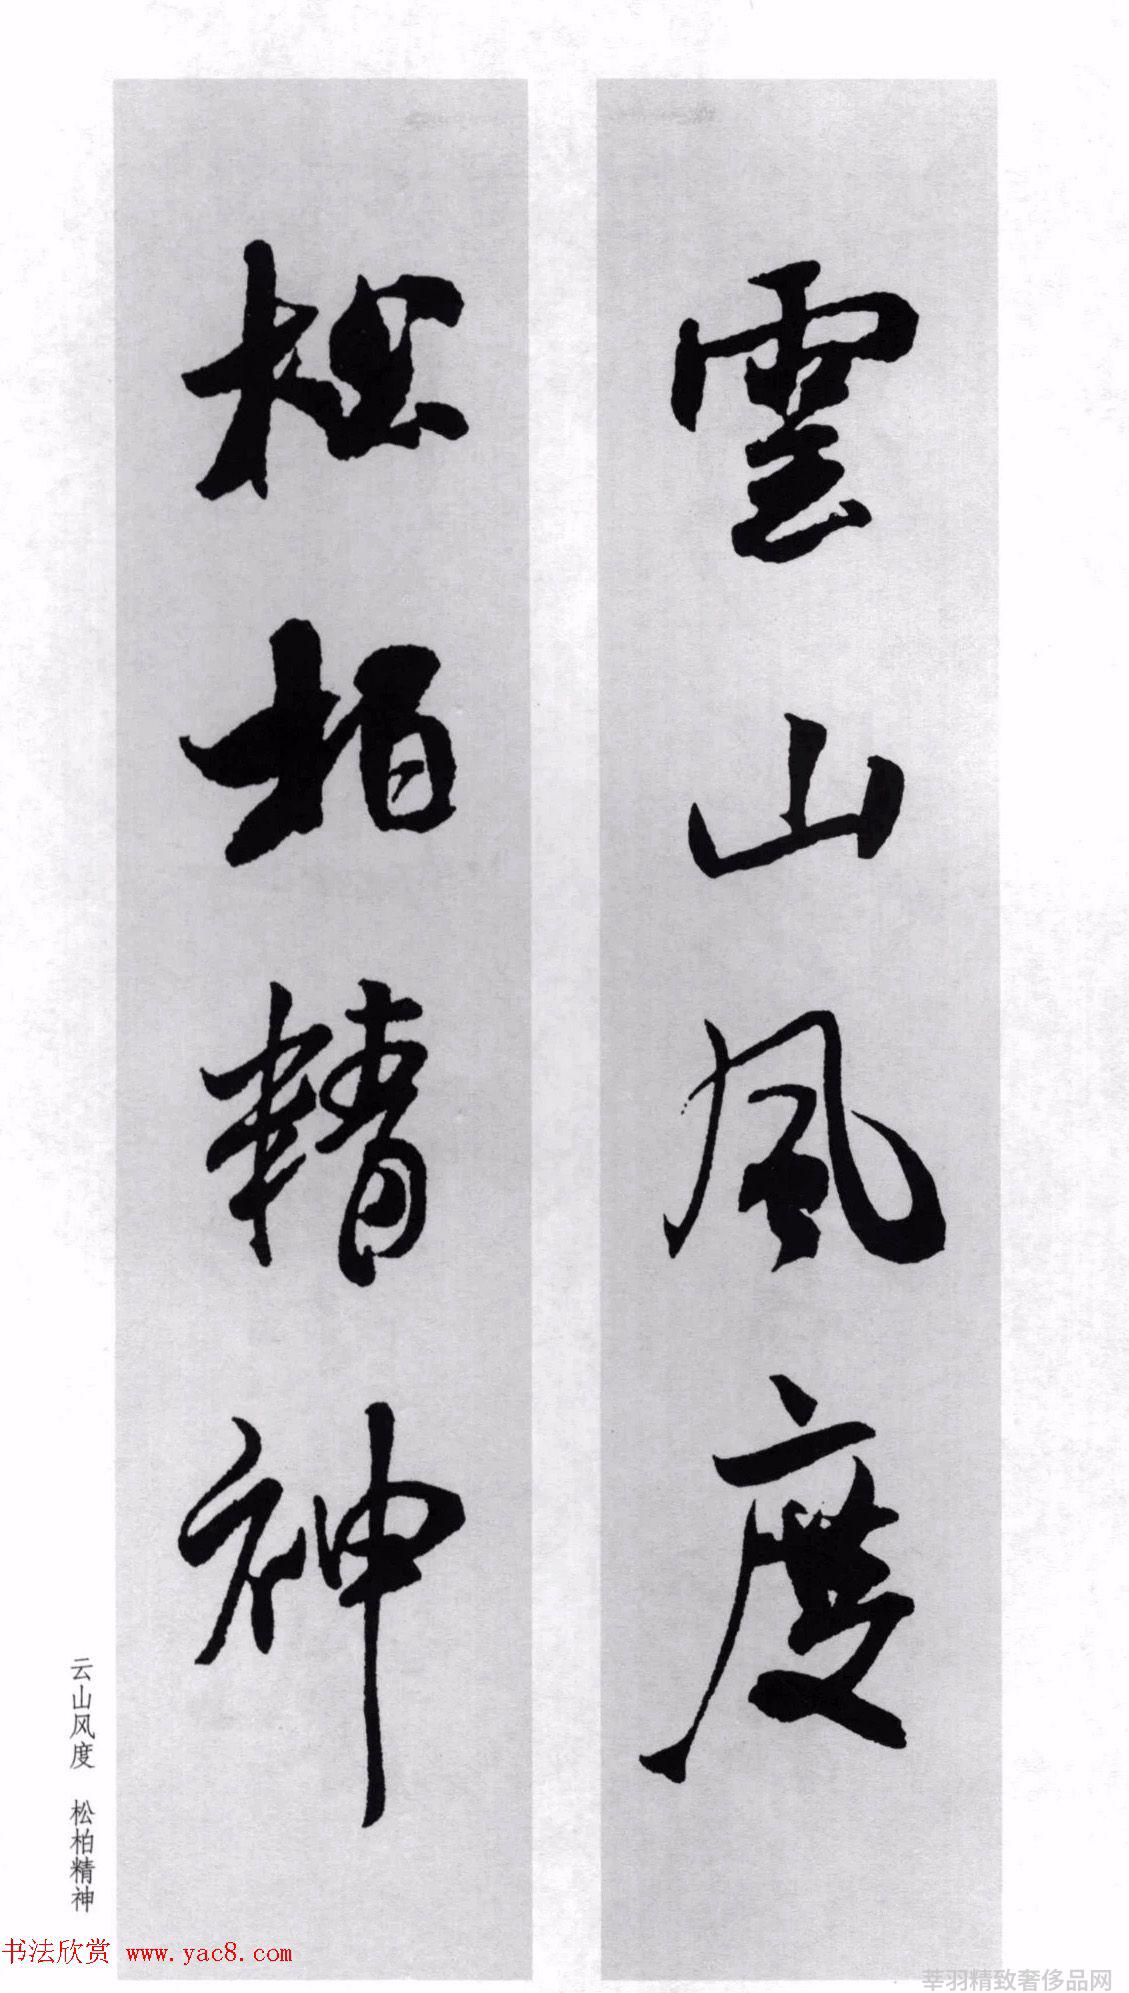 雲山風度
松柏精神
云山风度 松柏精神
书法欣赏 www.yac8.com
莘羽精致奢侈品网